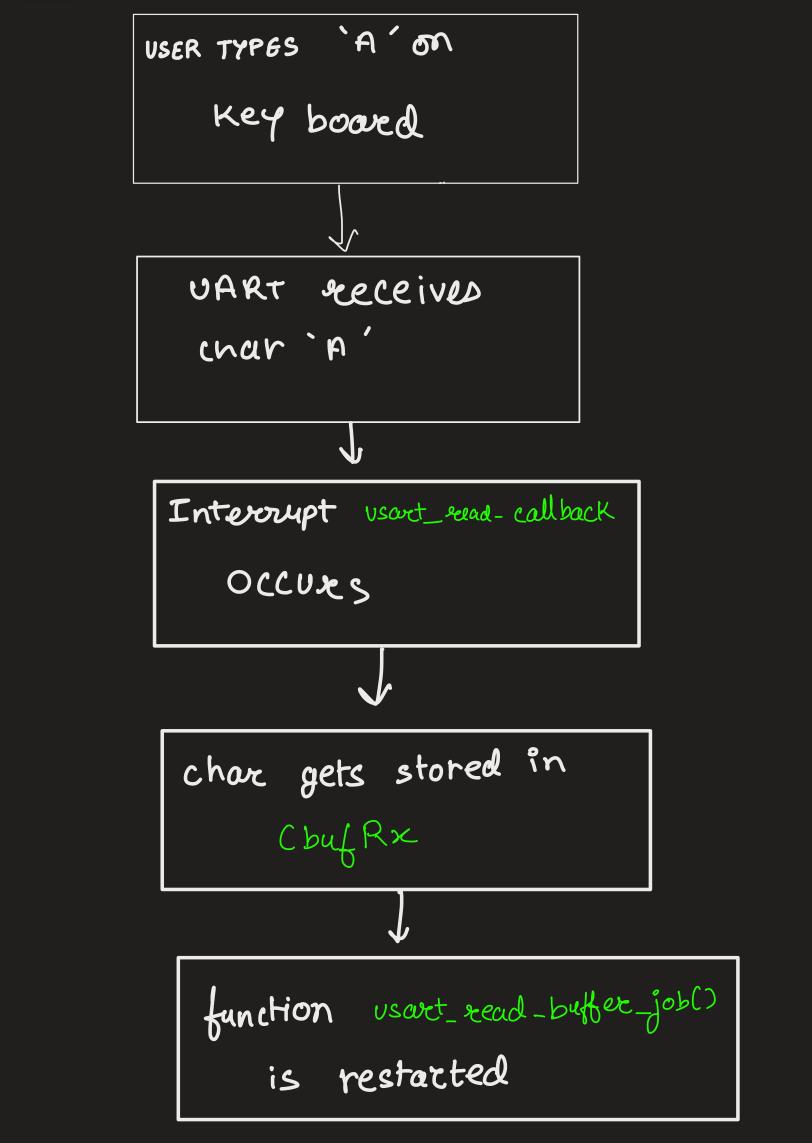 USER TYPES 'A' on
Key board
UART receives
char 'A'
Interrupt usart_read_callback
OCCURS
char gets stored in
CbufRx
function usart_read_buffer_job()
is restarted